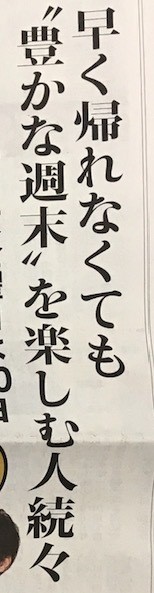 早く帰れなくても
〝豊かな週末〟を楽しむ人続々